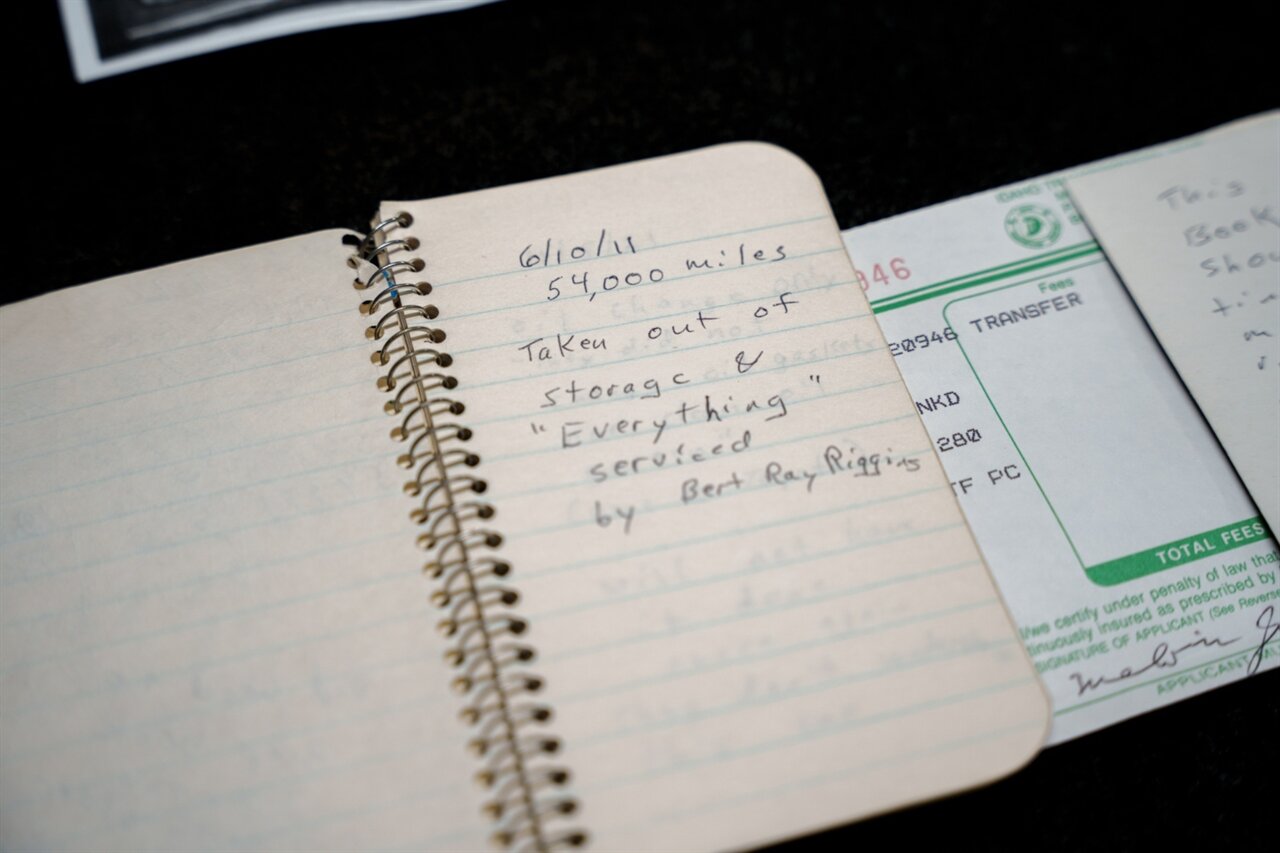 6/10/11
54,000 miles
Taken out of
storage &
"Everything"
serviced
by Bert Ray Riggins
946
Fees
20946 TRANSFER
NKD
280
TF PC
TOTAL FEES
we certify under penalty of law that
insured as prescribed by
SIGNATURE OF APPLICANT (See Reverse
Melvin
APPLICANT
This
Book